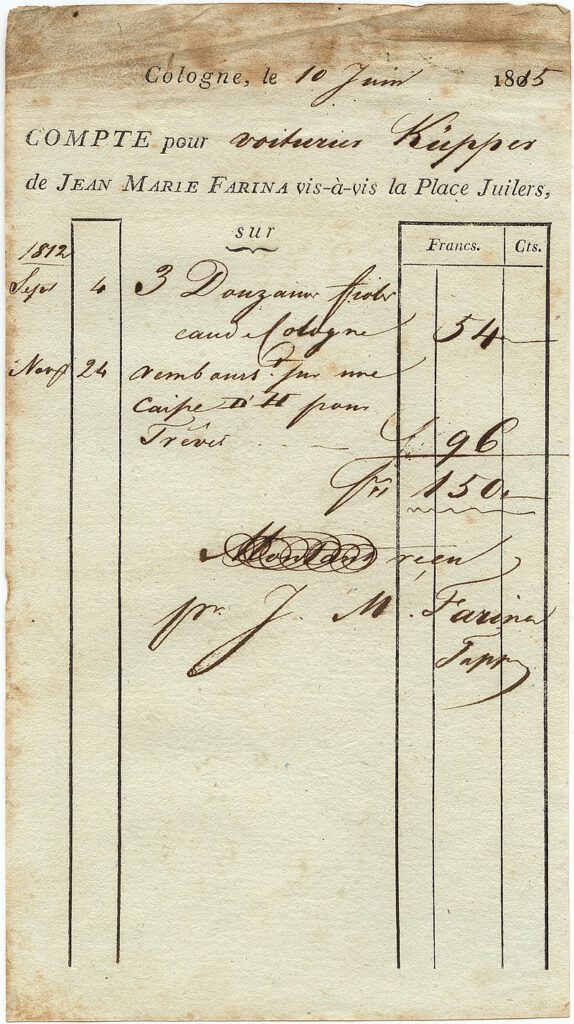 Cologne, le 10 Juin 1815
COMPTE pour voiturier Küpper
de JEAN MARIE FARINA vis-à-vis la Place Juilers,
sur
Francs. Cts.
1812
Sepr 4 3 Douzaine fioles
eau de Cologne 54
Novr 24 rembours sur une
caisse pour
Trêves f 96
frs 150
Montant reçu
pr. J. M. Farina